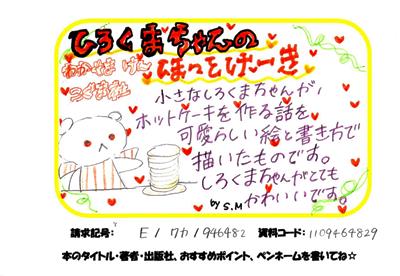 しろくまちゃんの
ほっとけーき
わかやま けん
こぐま社
小さなしろくまちゃんが、
ホットケーキを作る話を
可愛らしい絵と書き方で
描いたものです。
しろくまちゃんがとても
かわいいです。
by S.M
請求記号： E / ワカ / 946482 資料コード： 1109464829
本のタイトル・著者・出版社、おすすめポイント、ペンネームを書いてね☆